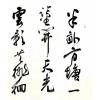 半畝方塘一
鑒開天光
雲影共徘徊